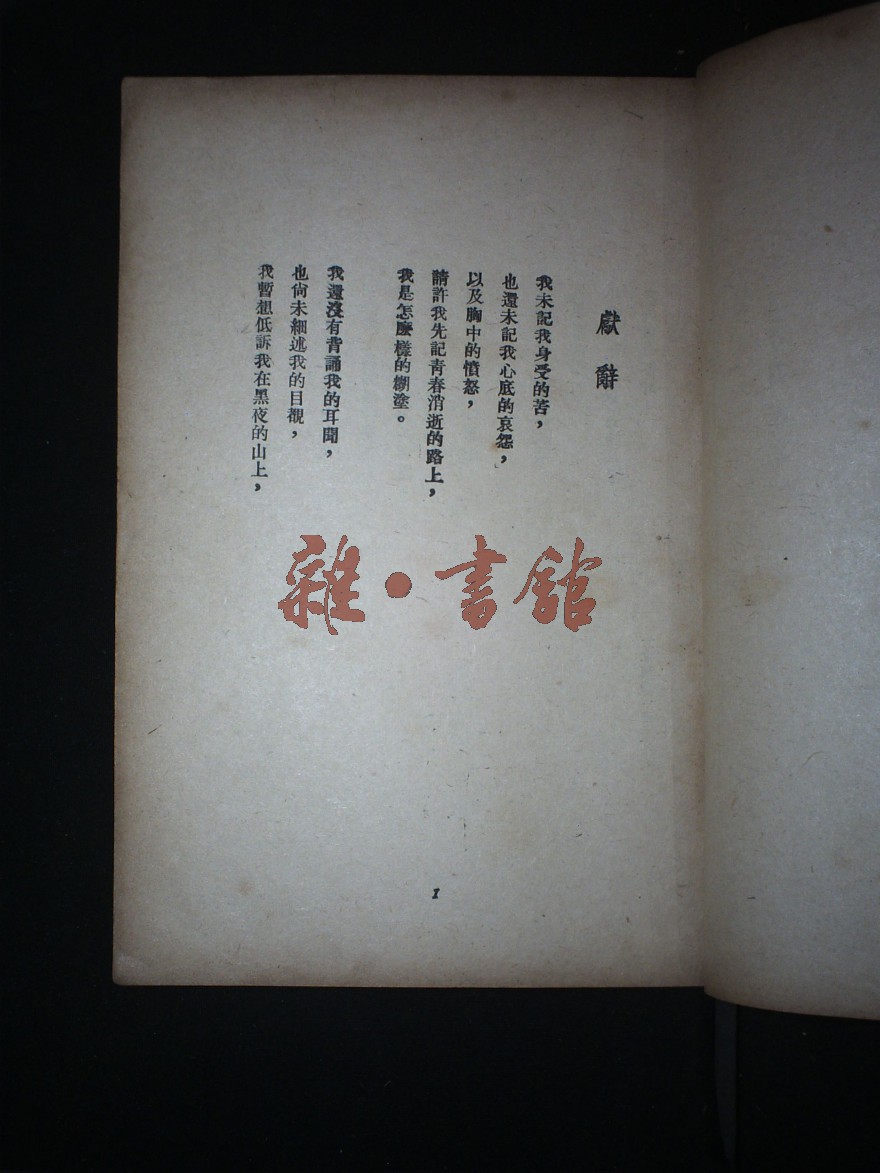 獻辭
我未記我身受的苦，
也還未記我心底的哀怨，
以及胸中的憤怒，
請許我先記青春消逝的路上，
我是怎麼樣的糊塗。
我還沒有背誦我的耳聞，
也尙未細述我的目覩，
我暫想低訴我在黑夜的山上，
雜·書館
1